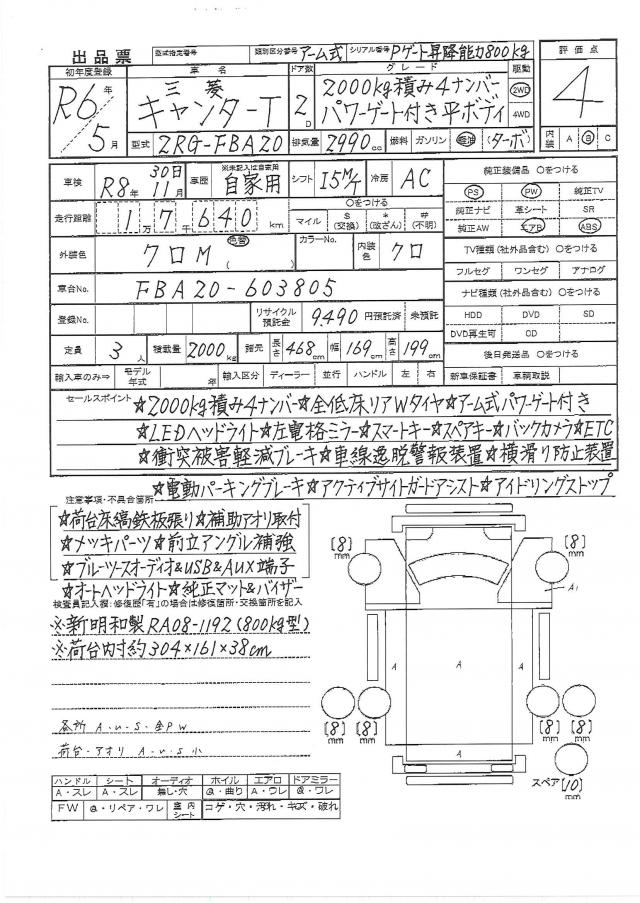 出品票 型式指定番号 類別区分番号 アーム式 シリアル番号 Pゲート昇降能力800kg
初年度登録 車名 ドア数 グレード 駆動 評価点
R6年 三菱 2000kg積み4ナンバー 2WD 4
5月 キャンターT 2D パワーゲート付き平ボディ 4WD
型式 2RG-FBA20 排気量 2990cc 燃料 ガソリン 軽油 (ターボ) 内装 A B C
車検 R8年 30日 11月 車歴 ※未記入は自家用 自家用 シフト 15M/T 冷房 AC 純正装備品 〇をつける
PS PW 純正TV
走行距離 1万7千640km 〇をつける マイル $(交換) *(改ざん) #(不明) 純正ナビ 革シート SR
純正AW エアB ABS
外装色 クロM 色替 ( ) カラーNo. 内装色 クロ TV種類(社外品含む) 〇をつける
フルセグ ワンセグ アナログ
車台No. FBA20-603805 ナビ種類(社外品含む) 〇をつける
登録No. リサイクル預託金 9,490 円預託済 未預託 HDD DVD SD
DVD再生可 CD
定員 3人 積載量 2000kg 諸元 長さ 468cm 幅 169cm 高さ 199cm 後日発送品 〇をつける
輸入車のみ⇒ モデル年式 年 輸入区分 ディーラー 並行 ハンドル 左 右 新車保証書 車輌取説
セールスポイント ☆2000kg積み4ナンバー☆全低床リアWタイヤ☆アーム式パワーゲート付き
☆LEDヘッドライト☆左電格ミラー☆スマートキー☆スペアキー☆バックカメラ☆ETC
☆衝突被害軽減ブレーキ☆車線逸脱警報装置☆横滑り防止装置
☆電動パーキングブレーキ☆アクティブサイドガードアシスト☆アイドリングストップ
注意事項・不具合箇所
☆荷台床縞鉄板張り☆補助アオリ取付
☆メッキパーツ☆前立アングル補強
☆ブルーツースオーディオ&USB&AUX端子
☆オートヘッドライト☆純正マット&バイザー
検査員記入欄:修復歴「有」の場合は修復箇所・交換箇所を記入
※新明和製RA08-1192(800kg型)
※荷台内寸約304×161×38cm
各所 A・U・S・全PW
荷台・アオリ A・U・S小
[8]mm [8]mm
A1
A A A
[8]mm [8]mm [8]mm [8]mm
A
スペア [10]mm
ハンドル シート オーディオ ホイル エアロ ドアミラー
A・スレ A・スレ 無し・穴 @・曲り A・ワレ @・ワレ
FW @・リペア・ワレ 室内シート コゲ・穴・汚れ・キズ・破れ